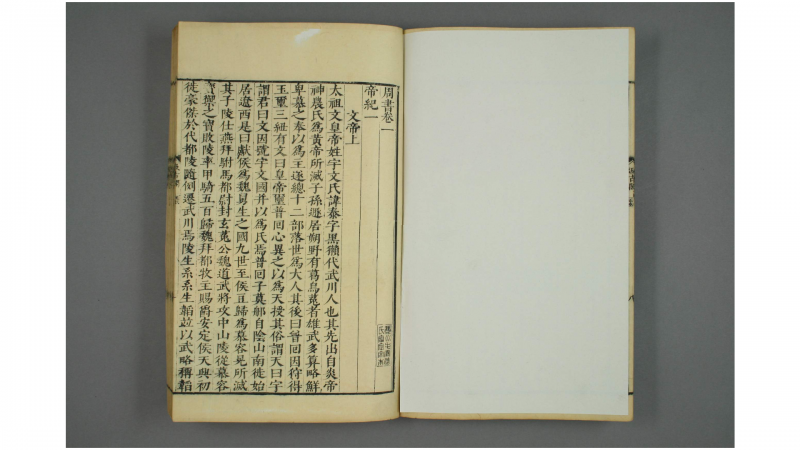 周書卷一
帝紀一
文帝上
太祖文皇帝姓宇文氏諱泰字黑獺代武川人也其先出自炎帝
神農氏爲黃帝所滅子孫遯居朔野有葛烏菟者雄武多算略鮮
卑慕之奉以爲主遂總十二部落世爲大人其後曰普回因狩得
玉璽三紐有文曰皇帝璽普回心異之以爲天授其俗謂天曰宇
謂君曰文因號宇文國并以爲氏焉普回子莫那自陰山南徙始
居遼西是曰獻侯爲魏舅生之國九世至侯豆歸爲慕容晃所滅
其子陵仕燕拜駙馬都尉封玄菟公魏道武將攻中山陵從慕容
禦之寶敗陵率甲騎五百歸魏拜都牧主賜爵安定侯天興初
徙豪傑於代都陵隨例遷武川焉陵生系系生韜竝以武略稱韜